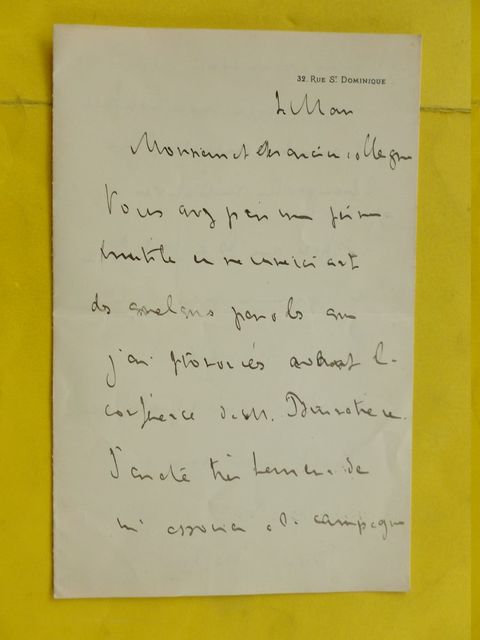 32, RUE St DOMINIQUE
2 Mars
Monsieur et cher ancien collègue
Vous avez pris une peine
inutile en me remerciant
des quelques paroles que
j'ai prononcées avant la
conférence de M. Brunetière.
J'ai été très heureux de
m'associer à la campagne